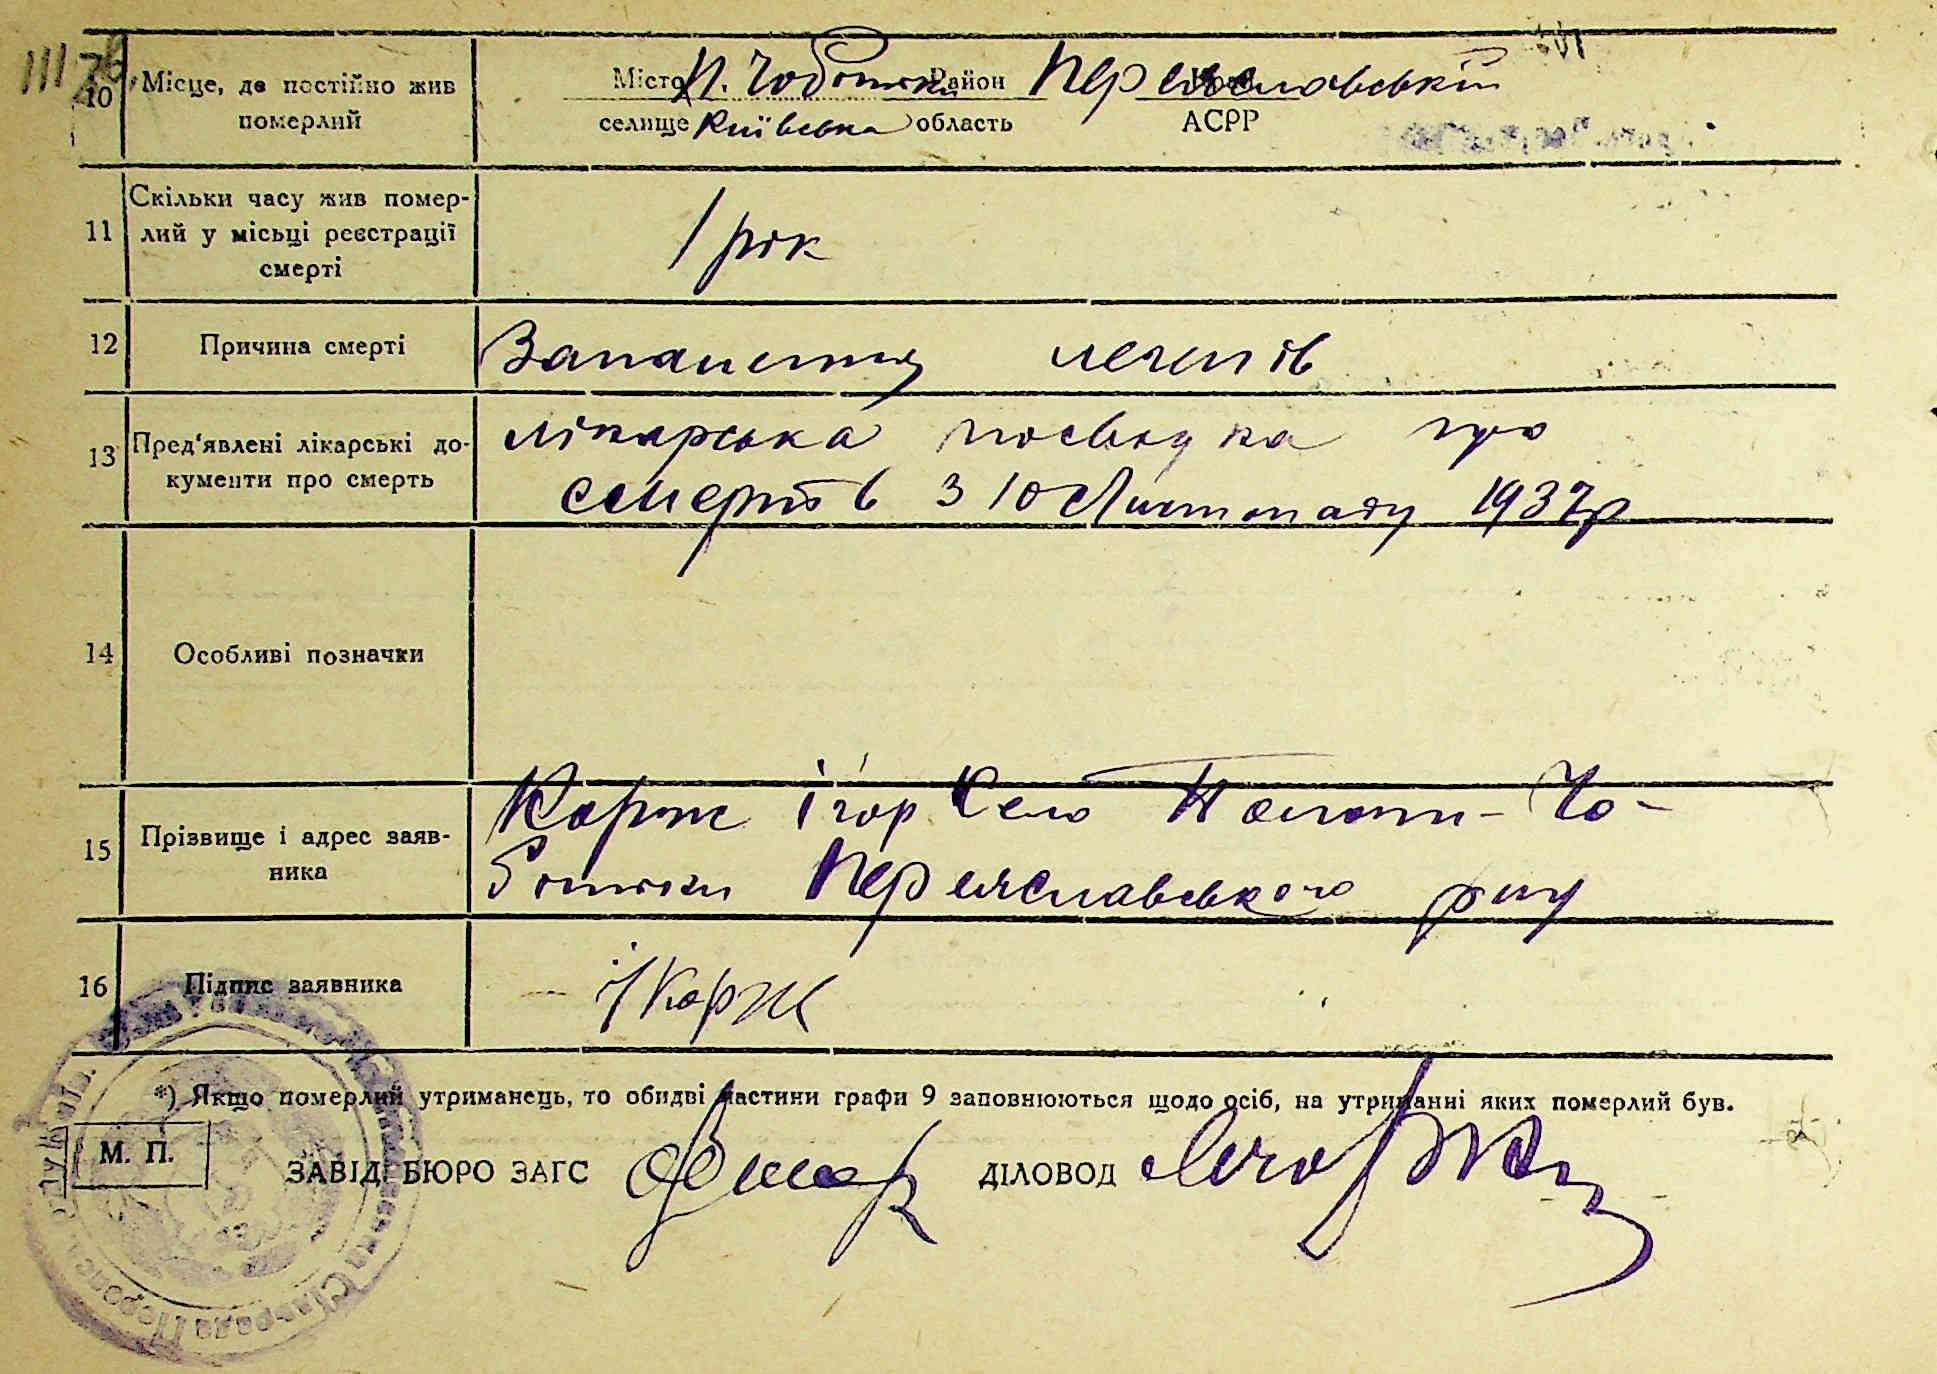 10 Місце, де постійно жив Місто П. Чобітки Район Переяславській Край
померлий селище Київська область АСРР
Скільки часу жив помер-
11 лий у місьці реєстрації 1 рік
смерті
12 Причина смерті Запалення легенів
13 Пред'явлені лікарські до- лікарська посвідка про
кументи про смерть смертъ в 3 10 Листопаду 1937р
14 Особливі позначки
15 Прізвище і адрес заяв- Корж ігор Село Полого-Чо-
ника ботьки Переяславського р-ну
16 Підпис заявника і Корж
*) Якщо померлий утриманець, то обидві частини графи 9 заповнюються щодо осіб, на утриманні яких померлий був.
М. П.
ЗАВІД. БЮРО ЗАГС ДІЛОВОД